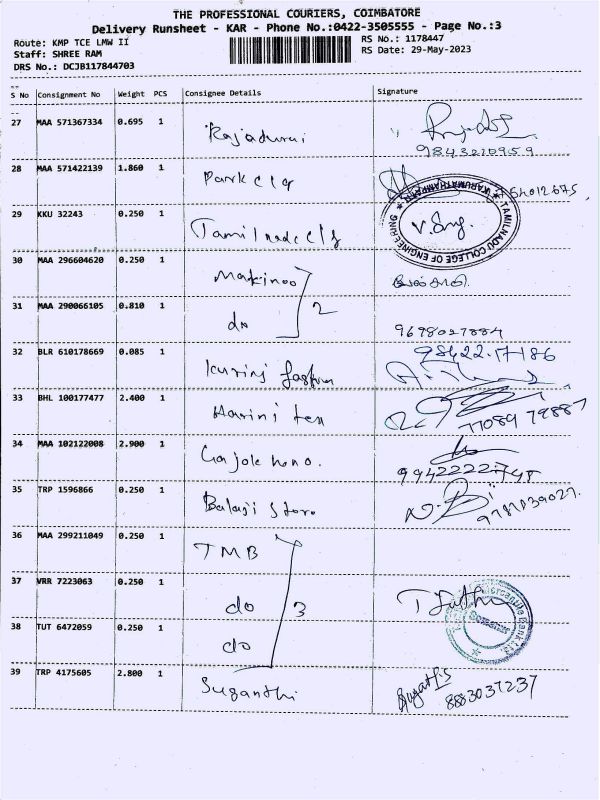 THE PROFESSIONAL COURIERS, COIMBATORE
Delivery Runsheet - KAR - Phone No.:0422-3505555 - Page No.:3
Route: KMP TCE LMW II
RS No.: 1178447
Staff: SHREE RAM
RS Date: 29-May-2023
DRS No.: DCJB117844703
S No Consignment No Weight PCS Consignee Details Signature
27 MAA 571367334 0.695 1 Rajadurai
9843210959
28 MAA 571422139 1.860 1 Park clg
29 KKU 32243 0.250 1 Tamilnadu clg
TAMILNADU COLLEGE OF ENGINEERING ★ KARUMATHAMPATTI ★
30 MAA 296604620 0.250 1 Makinoo
31 MAA 290066105 0.810 1 do 2
9698027884
32 BLR 610178669 0.085 1
98422.17186
33 BHL 100177477 2.400 1 Harini tex
77089 79887
34 MAA 102122008 2.900 1
35 TRP 1596866 0.250 1 Balaji Store
36 MAA 299211049 0.250 1 TMB
37 VRR 7223063 0.250 1 do 3
38 TUT 6472059 0.250 1 do
39 TRP 4175605 2.800 1 Suganthi
8883037237